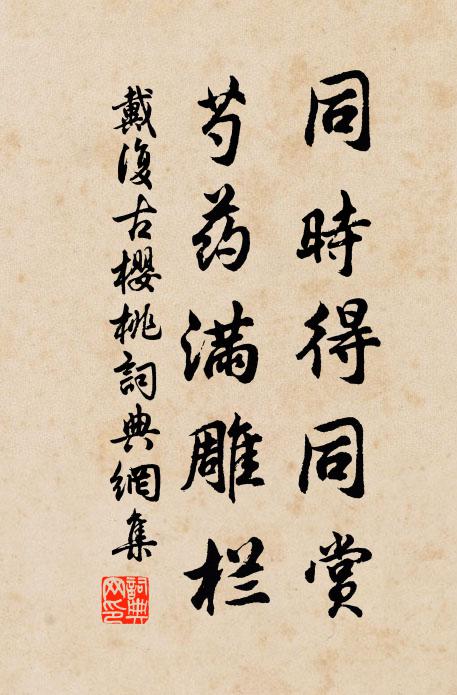 同時得同賞
芍药满雕栏
戴復古櫻桃詞典網集
詞典网印